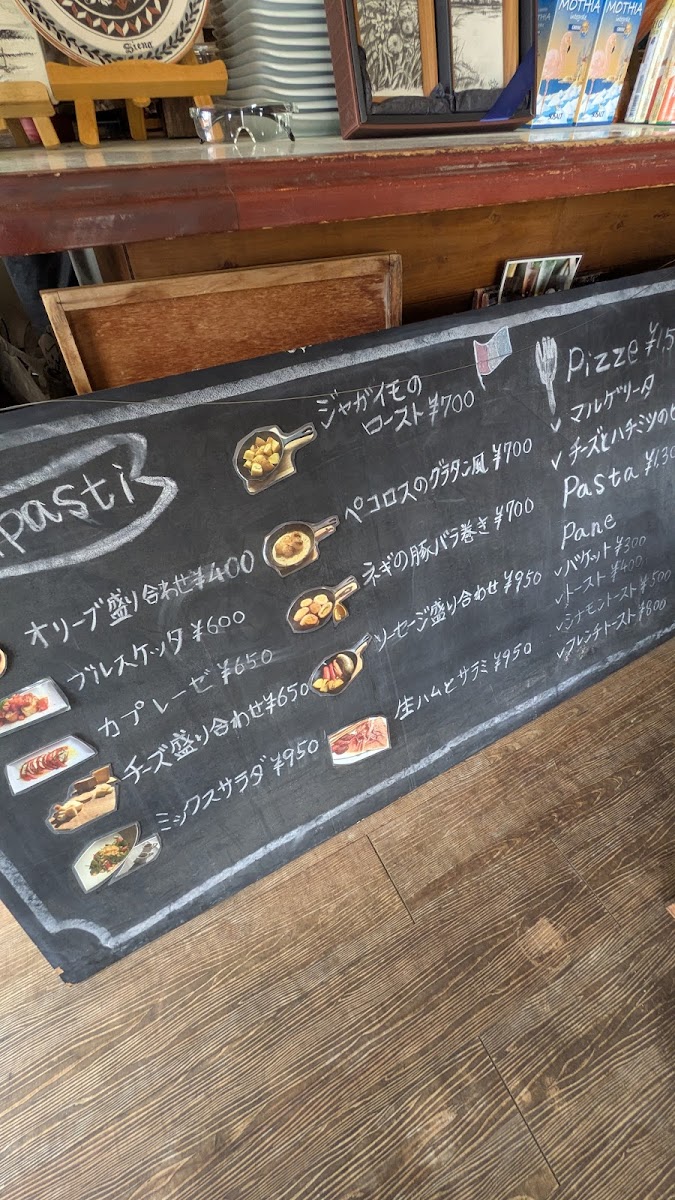 Siena
MOTHIA
MOTHIA
SALT
SALT
pasti
オリーブ盛り合わせ¥400
ブルスケッタ ¥600
カプレーゼ ¥650
チーズ盛り合わせ¥650
ミックスサラダ ¥950
ジャガイモの
ロースト ¥700
ペコロスのグラタン風 ¥700
ネギの豚バラ巻き ¥700
ソーセージ盛り合わせ ¥950
生ハムとサラミ ¥950
Pizze ¥1,5
マルゲリータ
チーズとハチミツの
Pasta ¥1,30
Pane
バケット ¥300
トースト ¥400
シナモントースト ¥500
フレンチトースト ¥800